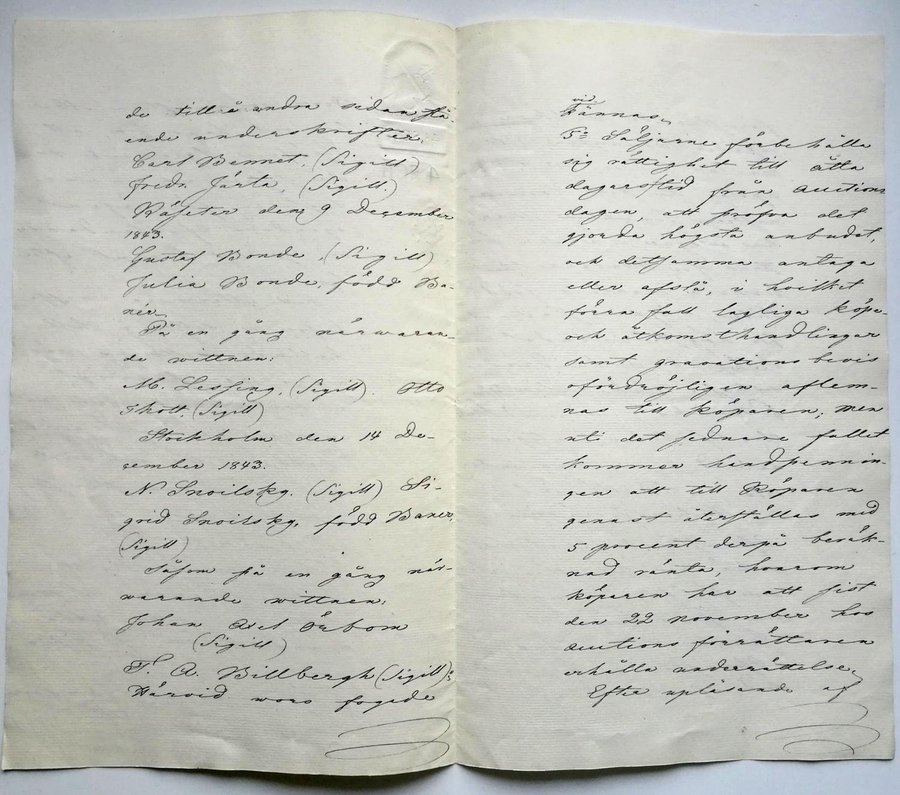 de till å andra sidan stå-
ende underskrifter.
Carl Bennet. (Sigill)
Fredr. Järta. (Sigill)
Räfster den 9 December
1843.
Gustaf Bonde. (Sigill)
Julia Bonde, född Ba-
nér.
På en gång närwaran-
de wittnen:
M. Lessing. (Sigill). Otto
Thott. (Sigill)
Stockholm den 14 De-
cember 1843.
N. Snoilsky. (Sigill) Si-
grid Snoilsky, född Baner,
(Sigill)
Såsom på en gång när-
warande wittnen:
Johan Axel Örbom
(Sigill)
T. A. Billbergh (Sigill)
Härvid wore fogade
vi
Hännas.
5º Säljarne förbehålla
sig rättighet till åtta
dagarstid från auctions
dagen, att pröfva det
gjorda högsta anbudet,
och detsamma antaga
eller afslå, i hvilket
förra fall lagliga köpe-
och åtkomsthandlingar
samt gravationsbevis
ofördröjligen aflem-
nas till köparen; men
uti det sednare fallet
kommer handpennin-
gen att till Köparen
genast återställas med
5 procent derpå beräk-
nad ränta, hvarom
köparen har att sist
den 22 november hos
auctions förrättaren
erhålla underrättelse.
Efter upläsande af